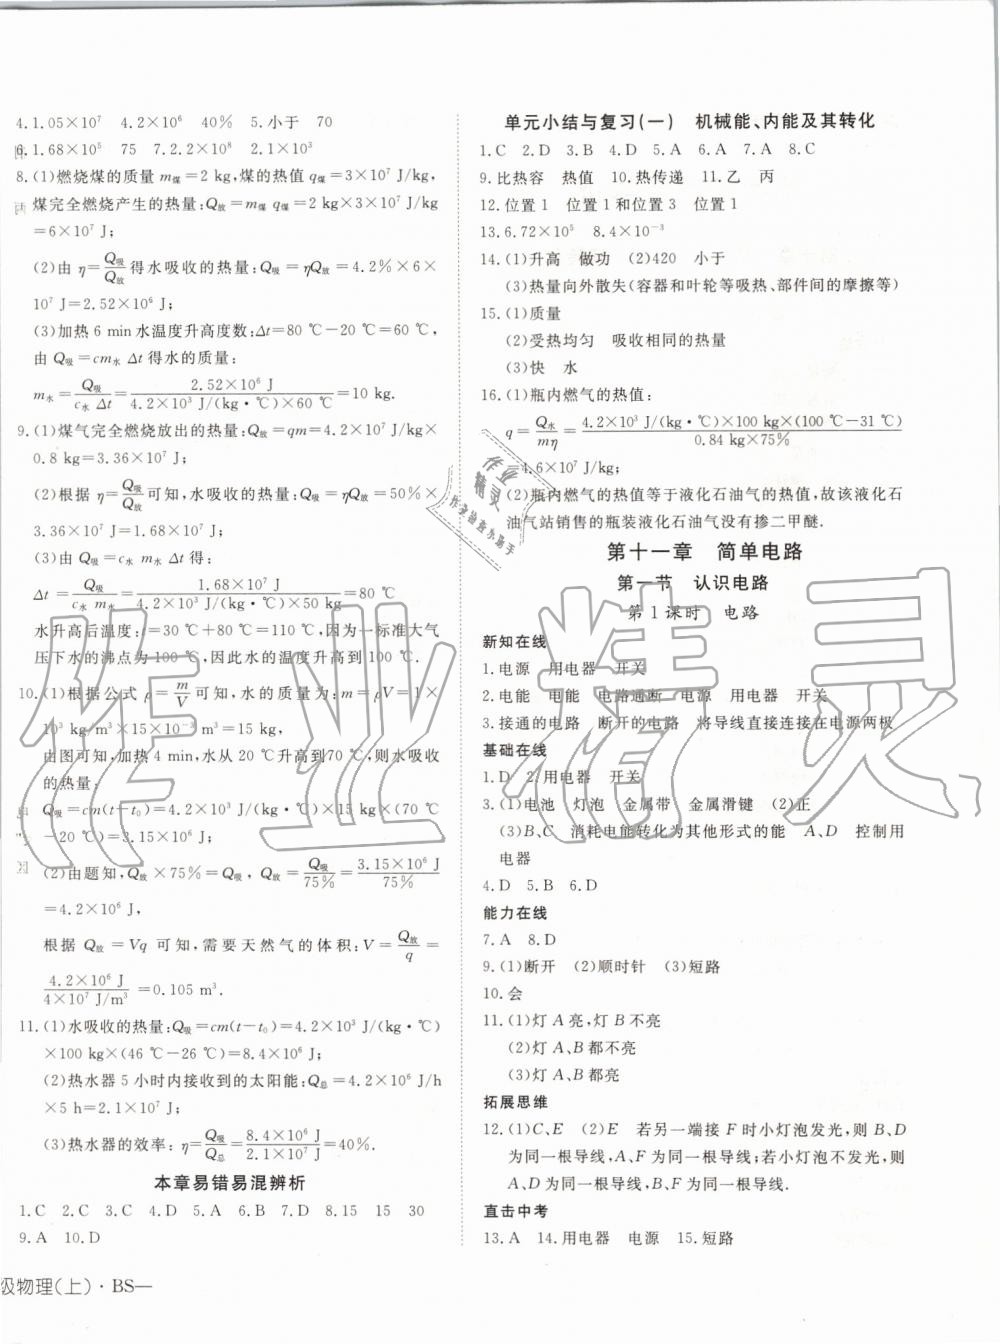 4.1.05×10⁷　4.2×10⁶　40%　5.小于　70
6.1.68×10⁵　75　7.2.2×10⁸　2.1×10³
8.(1)燃烧煤的质量 m煤=2 kg,煤的热值 q煤=3×10⁷ J/kg,
煤完全燃烧产生的热量:Q放=m煤 q煤=2 kg×3×10⁷ J/kg
=6×10⁷ J;
(2)由 η=Q吸/Q放 得水吸收的热量:Q吸=ηQ放=4.2%×6×
10⁷ J=2.52×10⁶ J;
(3)加热 6 min 水温度升高度数:Δt=80 ℃-20 ℃=60 ℃,
由 Q吸=cm水 Δt 得水的质量:
m水=Q吸/(c水 Δt)=2.52×10⁶ J/(4.2×10³ J/(kg·℃)×60 ℃)=10 kg.
9.(1)煤气完全燃烧放出的热量:Q放=qm=4.2×10⁷ J/kg×
0.8 kg=3.36×10⁷ J;
(2)根据 η=Q吸/Q放 可知,水吸收的热量:Q吸=ηQ放=50%×
3.36×10⁷ J=1.68×10⁷ J;
(3)由 Q吸=c水 m水 Δt 得:
Δt=Q吸/(c水 m水)=1.68×10⁷ J/(4.2×10³ J/(kg·℃)×50 kg)=80 ℃
水升高后温度:t=30 ℃+80 ℃=110 ℃,因为一标准大气
压下水的沸点为 100 ℃,因此水的温度升高到 100 ℃.
10.(1)根据公式 ρ=m/V 可知,水的质量为:m=ρV=1×
10³ kg/m³×15×10⁻³ m³=15 kg,
由图可知,加热 4 min,水从 20 ℃升高到70 ℃,则水吸收
的热量:
Q吸=cm(t-t₀)=4.2×10³ J/(kg·℃)×15 kg×(70 ℃
-20 ℃)=3.15×10⁶ J;
(2)由题知,Q放×75%=Q吸,Q放=Q吸/75%=3.15×10⁶ J/75%
=4.2×10⁶ J,
根据 Q放=Vq 可知,需要天然气的体积:V=Q放/q=
4.2×10⁶ J/(4×10⁷ J/m³)=0.105 m³.
11.(1)水吸收的热量:Q吸=cm(t-t₀)=4.2×10³ J/(kg·℃)
×100 kg×(46 ℃-26 ℃)=8.4×10⁶ J;
(2)热水器 5 小时内接收到的太阳能:Q总=4.2×10⁶ J/h
×5 h=2.1×10⁷ J;
(3)热水器的效率:η=Q吸/Q总=8.4×10⁶ J/2.1×10⁷ J=40%.
本章易错易混辨析
1.C　2.C　3.C　4.D　5.A　6.B　7.D　8.15　15　30
9.A　10.D
级物理(上)·BS—
单元小结与复习(一)　机械能、内能及其转化
1.C　2.D　3.B　4.D　5.A　6.A　7.A　8.C
9.比热容　热值　10.热传递　11.乙　丙
12.位置 1　位置 1 和位置 3　位置 1
13.6.72×10⁵　8.4×10⁻³
14.(1)升高　做功　(2)420　小于
(3)热量向外散失(容器和叶轮等吸热、部件间的摩擦等)
15.(1)质量
(2)受热均匀　吸收相同的热量
(3)快　水
16.(1)瓶内燃气的热值:
q=Q水/mη=4.2×10³ J/(kg·℃)×100 kg×(100 ℃-31 ℃)/(0.84 kg×75%)
=4.6×10⁷ J/kg;
(2)瓶内燃气的热值等于液化石油气的热值,故该液化石
油气站销售的瓶装液化石油气没有掺二甲醚.
第十一章　简单电路
第一节　认识电路
第 1 课时　电路
新知在线
1.电源　用电器　开关
2.电能　电能　电路通断　电源　用电器　开关
3.接通的电路　断开的电路　将导线直接连接在电源两极
基础在线
1.D　2.用电器　开关
3.(1)电池　灯泡　金属带　金属滑键　(2)正
(3)B、C　消耗电能转化为其他形式的能　A、D　控制用
电器
4.D　5.B　6.D
能力在线
7.A　8.D
9.(1)断开　(2)顺时针　(3)短路
10.会
11.(1)灯 A 亮,灯 B 不亮
(2)灯 A、B 都不亮
(3)灯 A、B 都不亮
拓展思维
12.(1)C、E　(2)E　若另一端接 F 时小灯泡发光,则 B、D
为同一根导线,A、F 为同一根导线;若小灯泡不发光,则
A、D 为同一根导线,B、F 为同一根导线.
直击中考
13.A　14.用电器　电源　15.短路
作业精灵
作业精灵
作业检查小助手